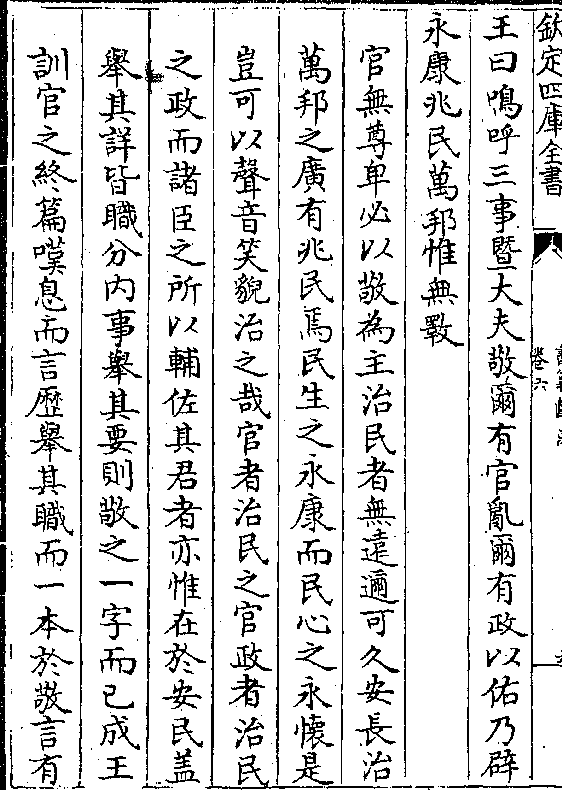 欽定四庫全書
卷六
王曰嗚呼三事暨大夫敬爾有官亂爾有政以佑乃辟
永康兆民萬邦惟無斁
官無尊卑必以敬為主治民者無遠邇可久安長治
萬邦之廣有兆民焉民生之永康而民心之永懷是
豈可以聲音笑貌治之哉官者治民之官政者治民
之政而諸臣之所以輔佐其君者亦惟在於安民蓋
舉其詳皆職分内事舉其要則敬之一字而已成王
訓官之終篇嘆息而言歴舉其職而一本於敬言有